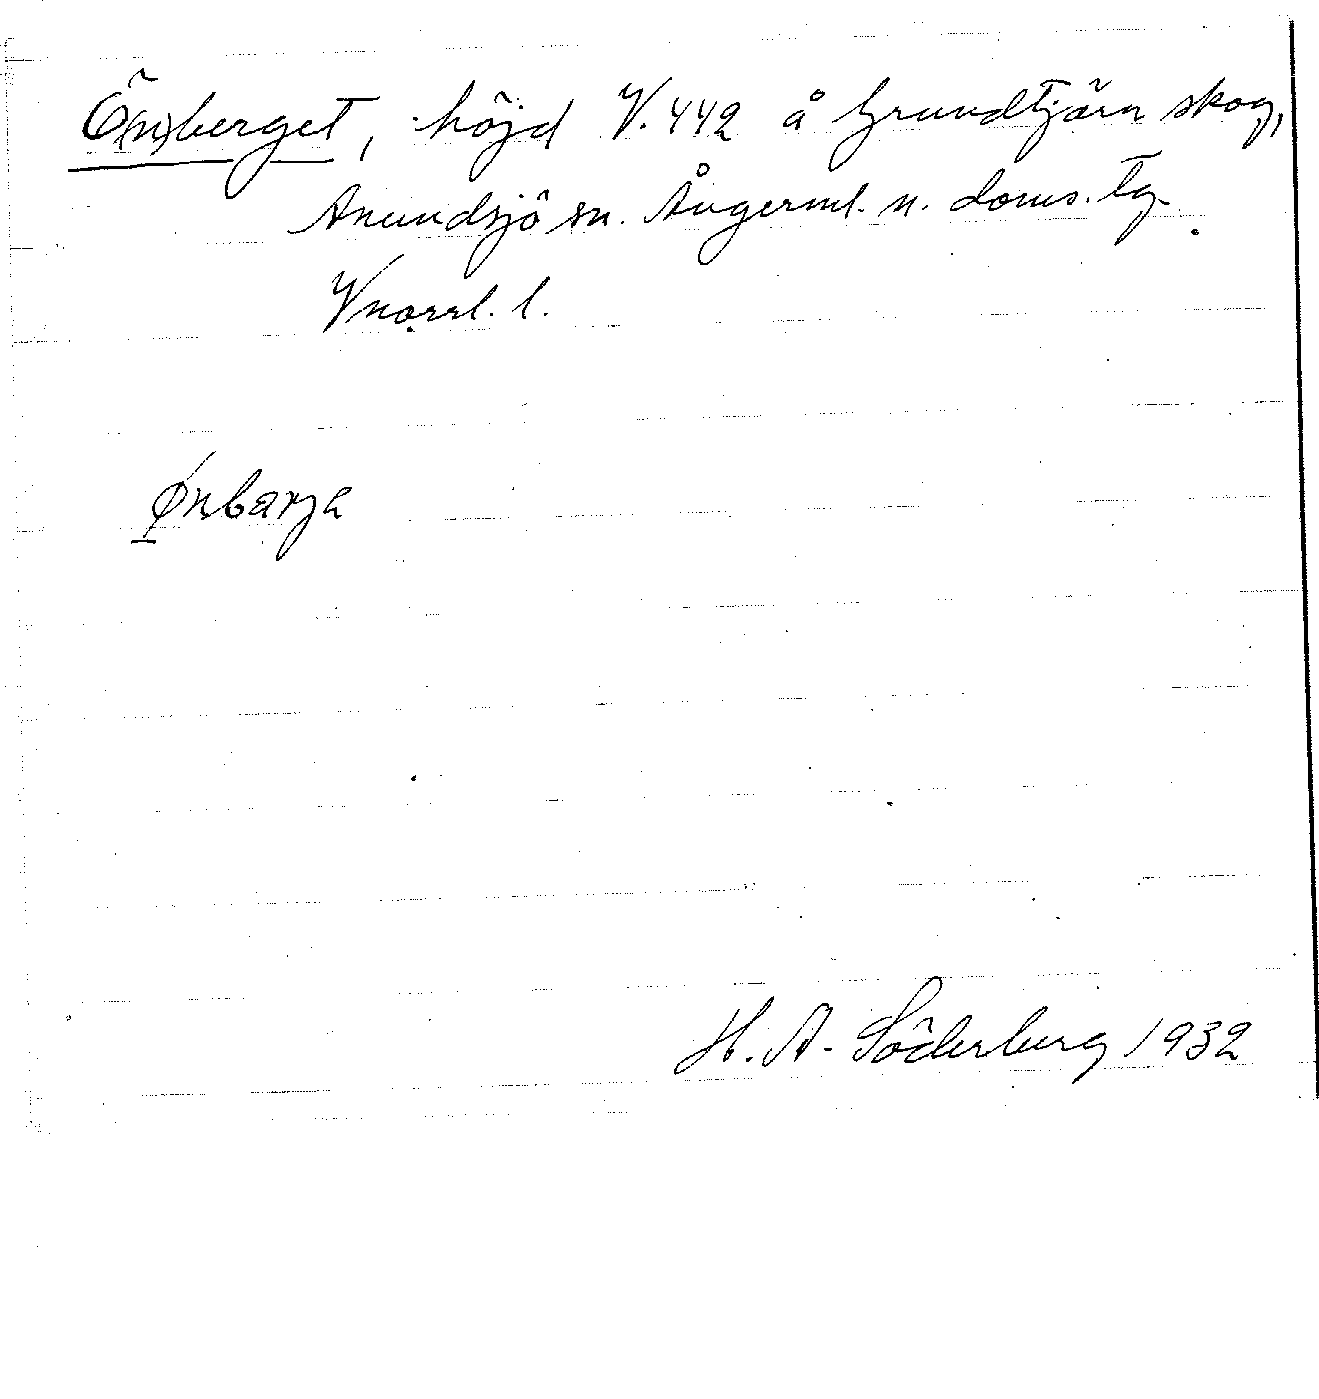 Ö(n)sberget, höjd V. 442 å Grundtjärn skog,
Anundsjö sn. Ångerml. n. doms. tg.
Vnorrl. l.
Ønbarja
H. A. Söderberg 1932